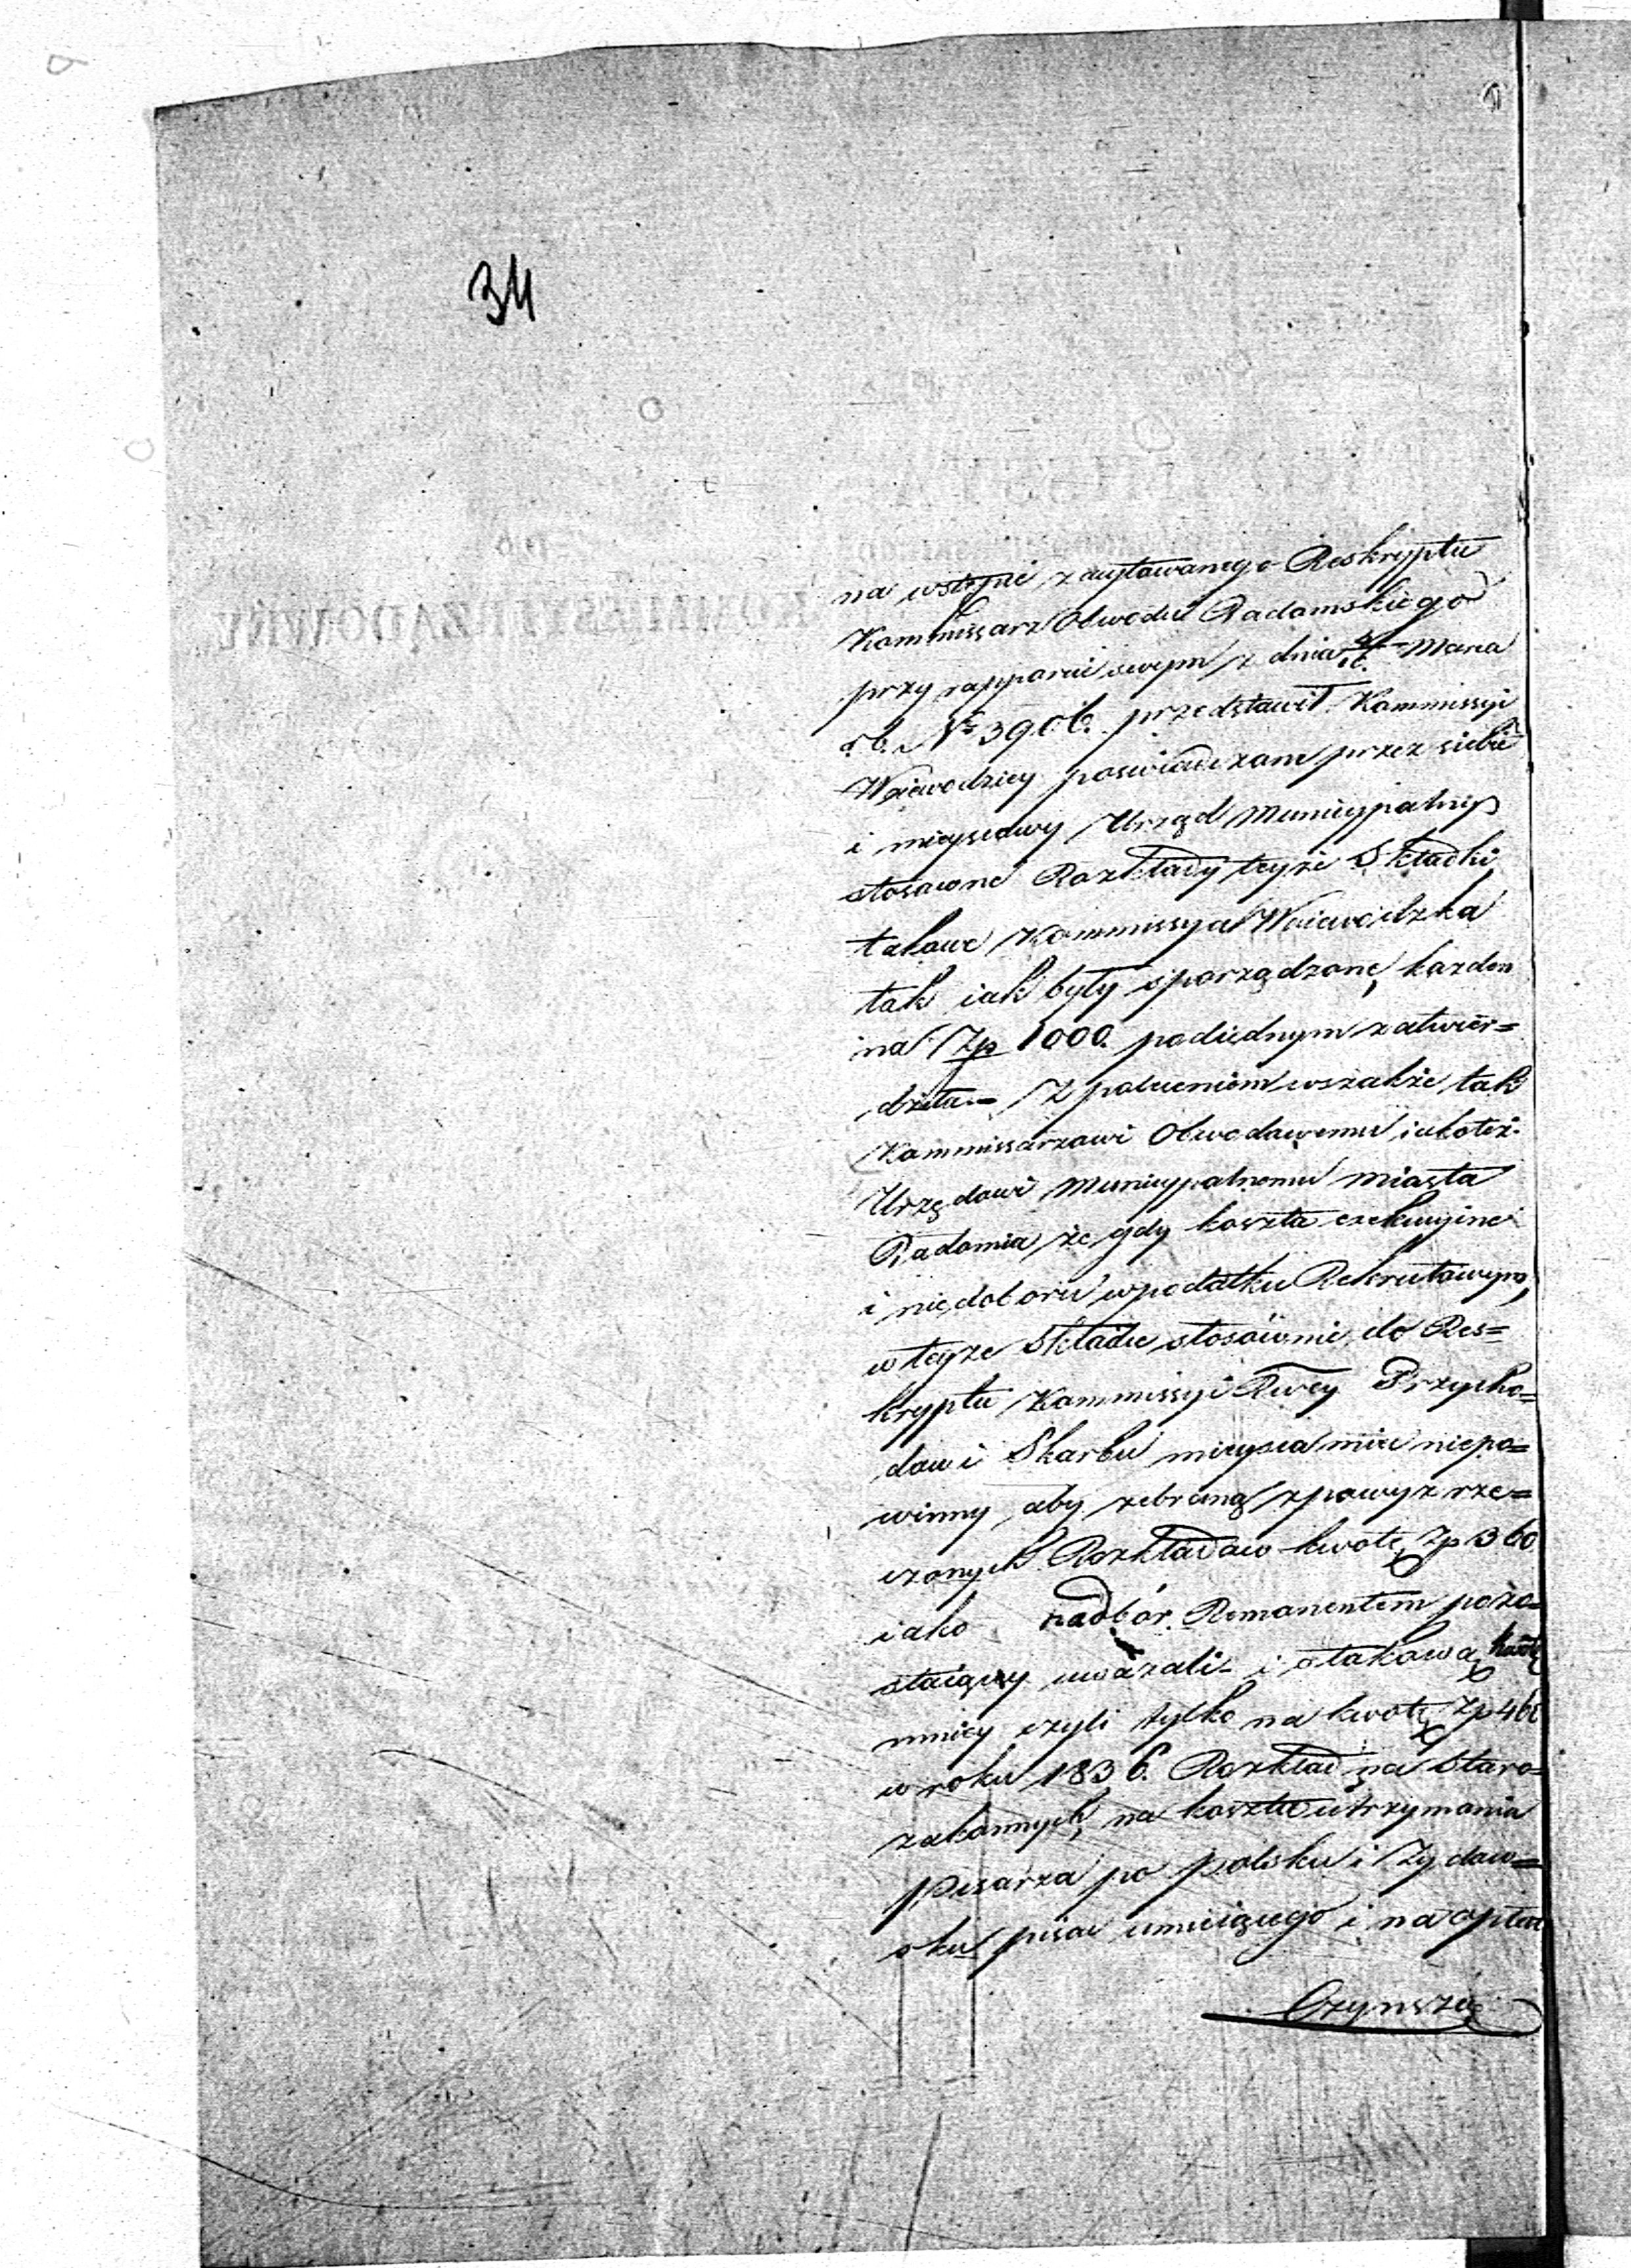 34
na wstępie zacytowanego Reskryptu
Kommissarz Obwodu Radomskiego
przy rapporcie swym z dnia Marca
r. b. No 3906. przedstawił Kommissyi
Woiewodzkiey poświadczone przez siebie
i mieyscowy Urząd Municypalny
stosowne Rozkłady teyże Składki
takowe Kommissya Woiewodzka
tak iak były sporządzone, każden
na Zp 1000. podiednym zatwier=
dziła.= Z poleceniem wszakże tak
Kommissarzowi Obwodowemu iakoteż
Urzędowi Municypalnemu miasta
Radomia, że gdy koszta exekucyine
i niedoboru w podatku Rekrutowym,
w teyże Składce stosównie do Res=
kryptu Kommissyi Rwey Przycho=
dów i Skarbu mieysca mieć niepo=
winny, aby zebraną z powyż rze=
czonych Rozkładów kwotę Zp 360
iako nadbór Remanentem pozo=
staiący uważali i o takową kwotę
mniey czyli tylko na kwotę Zp 46
w roku 1836. Rozkład na Staro=
zakonnych, na koszta utrzymania
Pisarza po polsku i Żydow=
sku pisać umieiącego i na opłatę
Czynszu
KOMMISSYI RZĄDOWEY